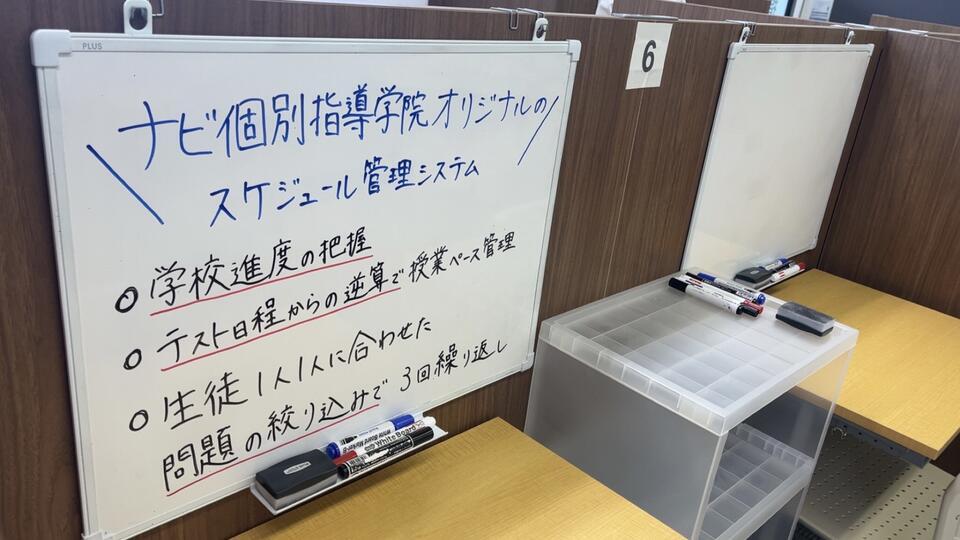 PLUS
ナビ個別指導学院オリジナルの
スケジュール管理システム
○ 学校進度の把握
○ テスト日程からの逆算で授業ペース管理
○ 生徒1人1人に合わせた
問題の絞り込みで3回繰り返し
6
WhiteBoard